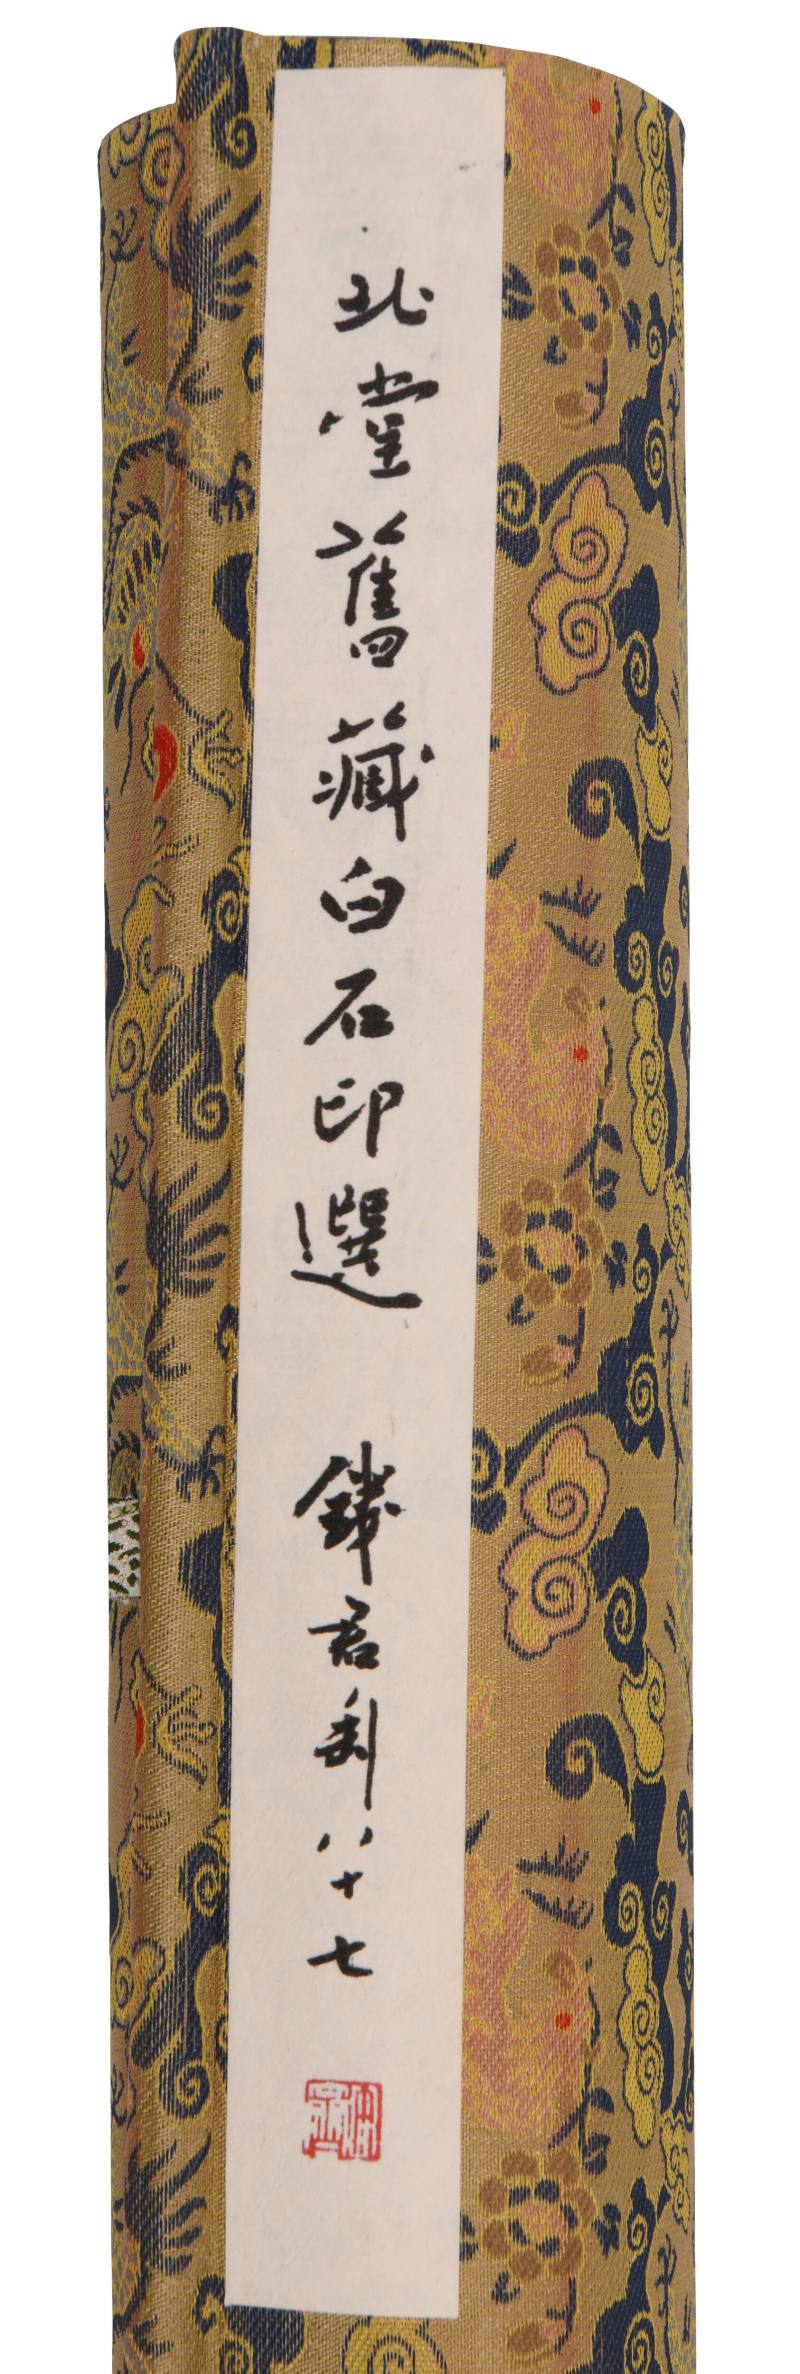 北堂舊藏白石印選 錢君匋八十七